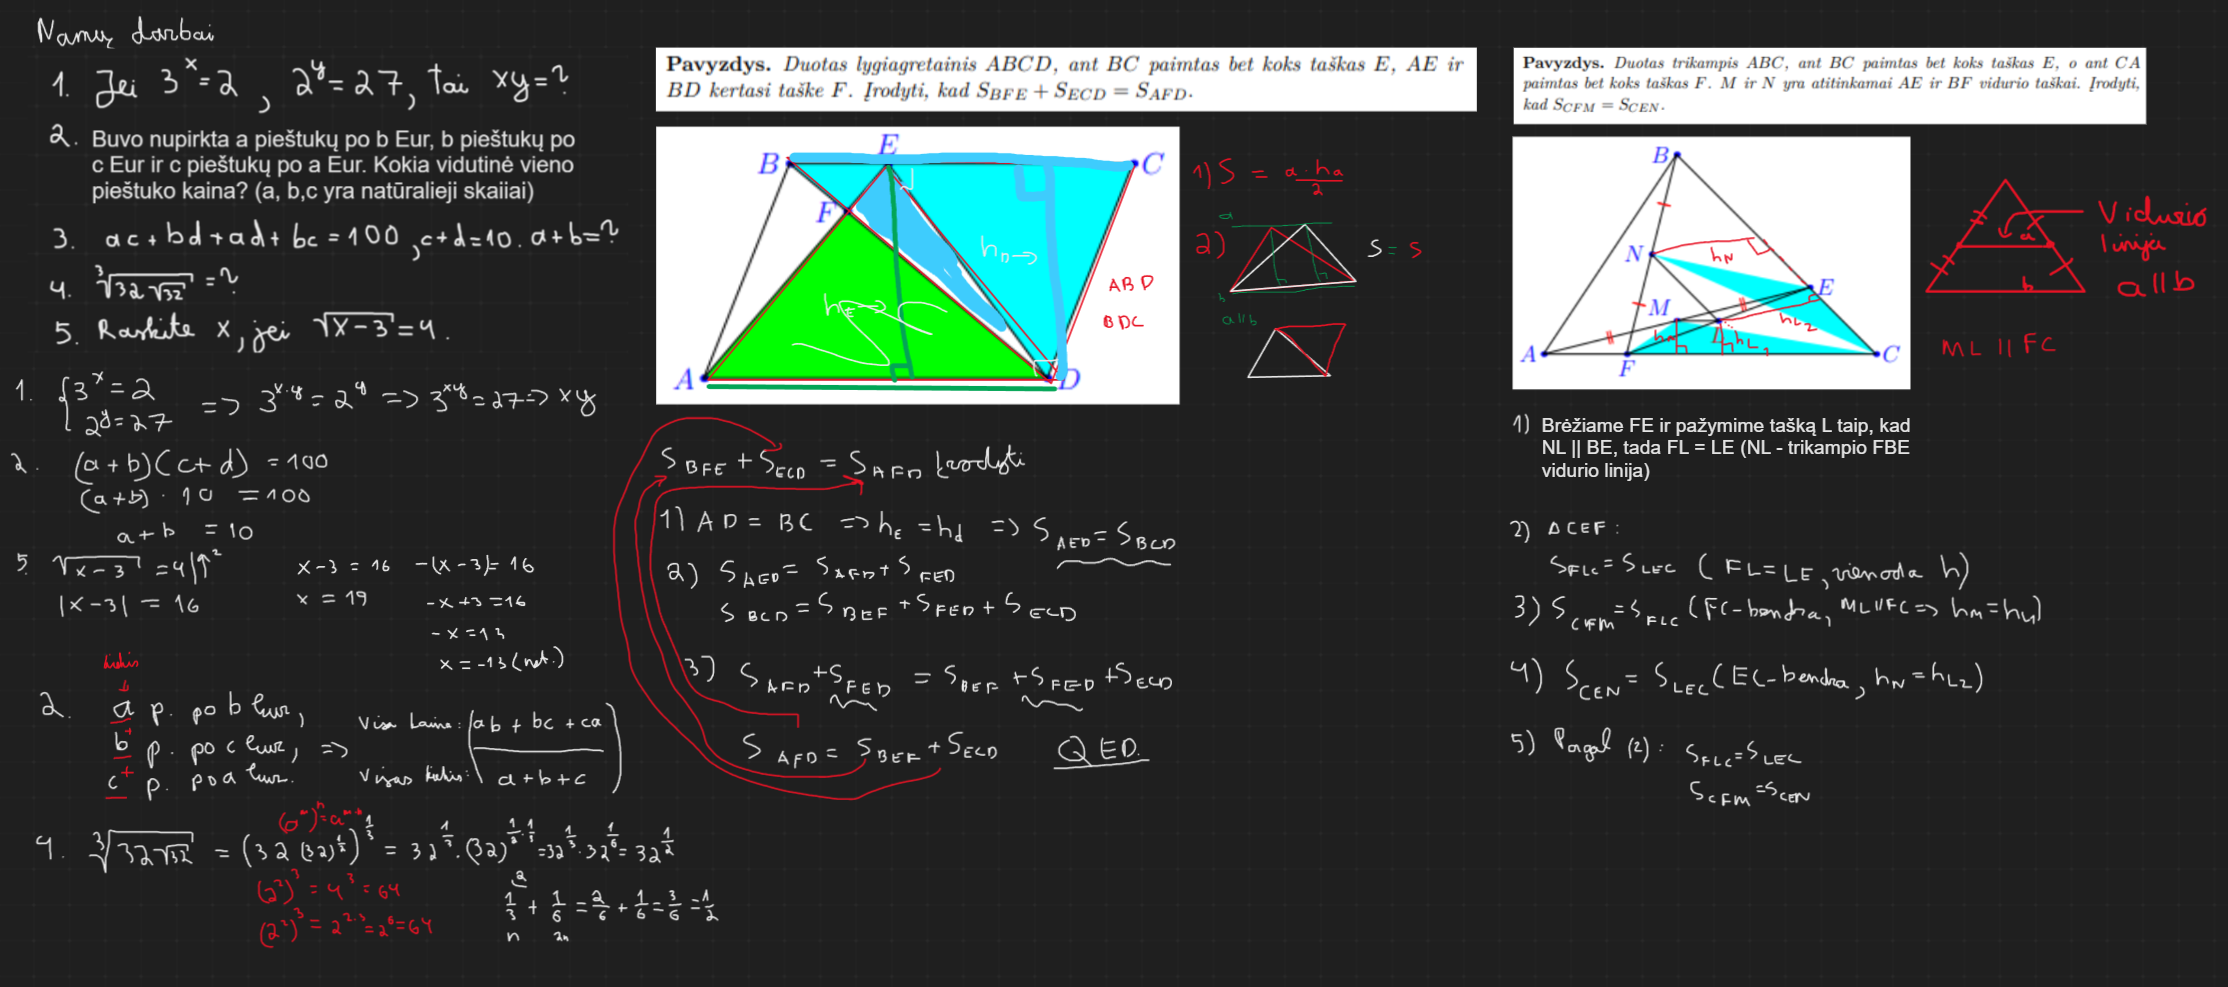 Namų darbai
1. Jei 3^x = 2, 2^y = 27, tai xy = ?
2. Buvo nupirkta a pieštukų po b Eur, b pieštukų po
c Eur ir c pieštukų po a Eur. Kokia vidutinė vieno
pieštuko kaina? (a, b,c yra natūralieji skaiiai)
3. ac + bd + ad + bc = 100, c+d=10. a+b=?
4. ∛(32√32) = ?
5. Raskite x, jei √(x-3) = 4.
1. {3^x = 2
2^y = 27 => 3^(x·y) = 2^y => 3^(xy) = 27 => xy
2. (a+b)(c+d) = 100
(a+b) · 10 = 100
a+b = 10
5. √(x-3) = 4 |↑²
|x-3| = 16
x-3 = 16
x = 19
-(x-3) = 16
-x+3 = 16
-x = 13
x = -13 (net.)
kiekis
2. a p. po b Eur,
b p. po c Eur, =>
c p. po a Eur.
+
+
Visa kaina: (ab + bc + ca
Visas kiekis: a+b+c)
(a^m)^n = a^m·
4. ∛(32√32) = (32 (32)^(1/2))^(1/3) = 32^(1/3) · (32)^(1/2·1/3) = 32^(1/3) · 32^(1/6) = 32^(1/2)
(2²)³ = 4³ = 64
(2²)³ = 2^(2·3) = 2^6 = 64
2
1/3 + 1/6 = 2/6 + 1/6 = 3/6 = 1/2
n 2n
Pavyzdys. Duotas lygiagretainis ABCD, ant BC paimtas bet koks taškas E, AE ir
BD kertasi taške F. Įrodyti, kad S_BFE + S_ECD = S_AFD.
B
E
C
F
A
D
h_D →
h_E →
ABD
BDC
1) S = a·ha/2
2)
a
b
a||b
S = S
S_BFE + S_ECD = S_AFD Įrodyti
1) AD = BC => h_E = h_d => S_AED = S_BCD
2) S_AED = S_AFD + S_FED
S_BCD = S_BEF + S_FED + S_ECD
3) S_AFD + S_FED = S_BEF + S_FED + S_ECD
S_AFD = S_BEF + S_ECD QED.
Pavyzdys. Duotas trikampis ABC, ant BC paimtas bet koks taškas E, o ant CA
paimtas bet koks taškas F. M ir N yra atitinkamai AE ir BF vidurio taškai. Įrodyti,
kad S_CFM = S_CEN.
B
N
h_N
E
M
h_L2
h_M
L
h_L1
A
F
C
Vidurio
linija
a
b
a||b
ML || FC
1) Brėžiame FE ir pažymime tašką L taip, kad
NL || BE, tada FL = LE (NL - trikampio FBE
vidurio linija)
2) ΔCEF:
S_FLC = S_LEC (FL = LE, vienoda h)
3) S_CFM = S_FLC (FC-bendra, ML||FC => h_M = h_L1)
4) S_CEN = S_LEC (EC-bendra, h_N = h_L2)
5) Pagal (2): S_FLC = S_LEC
S_CFM = S_CEN